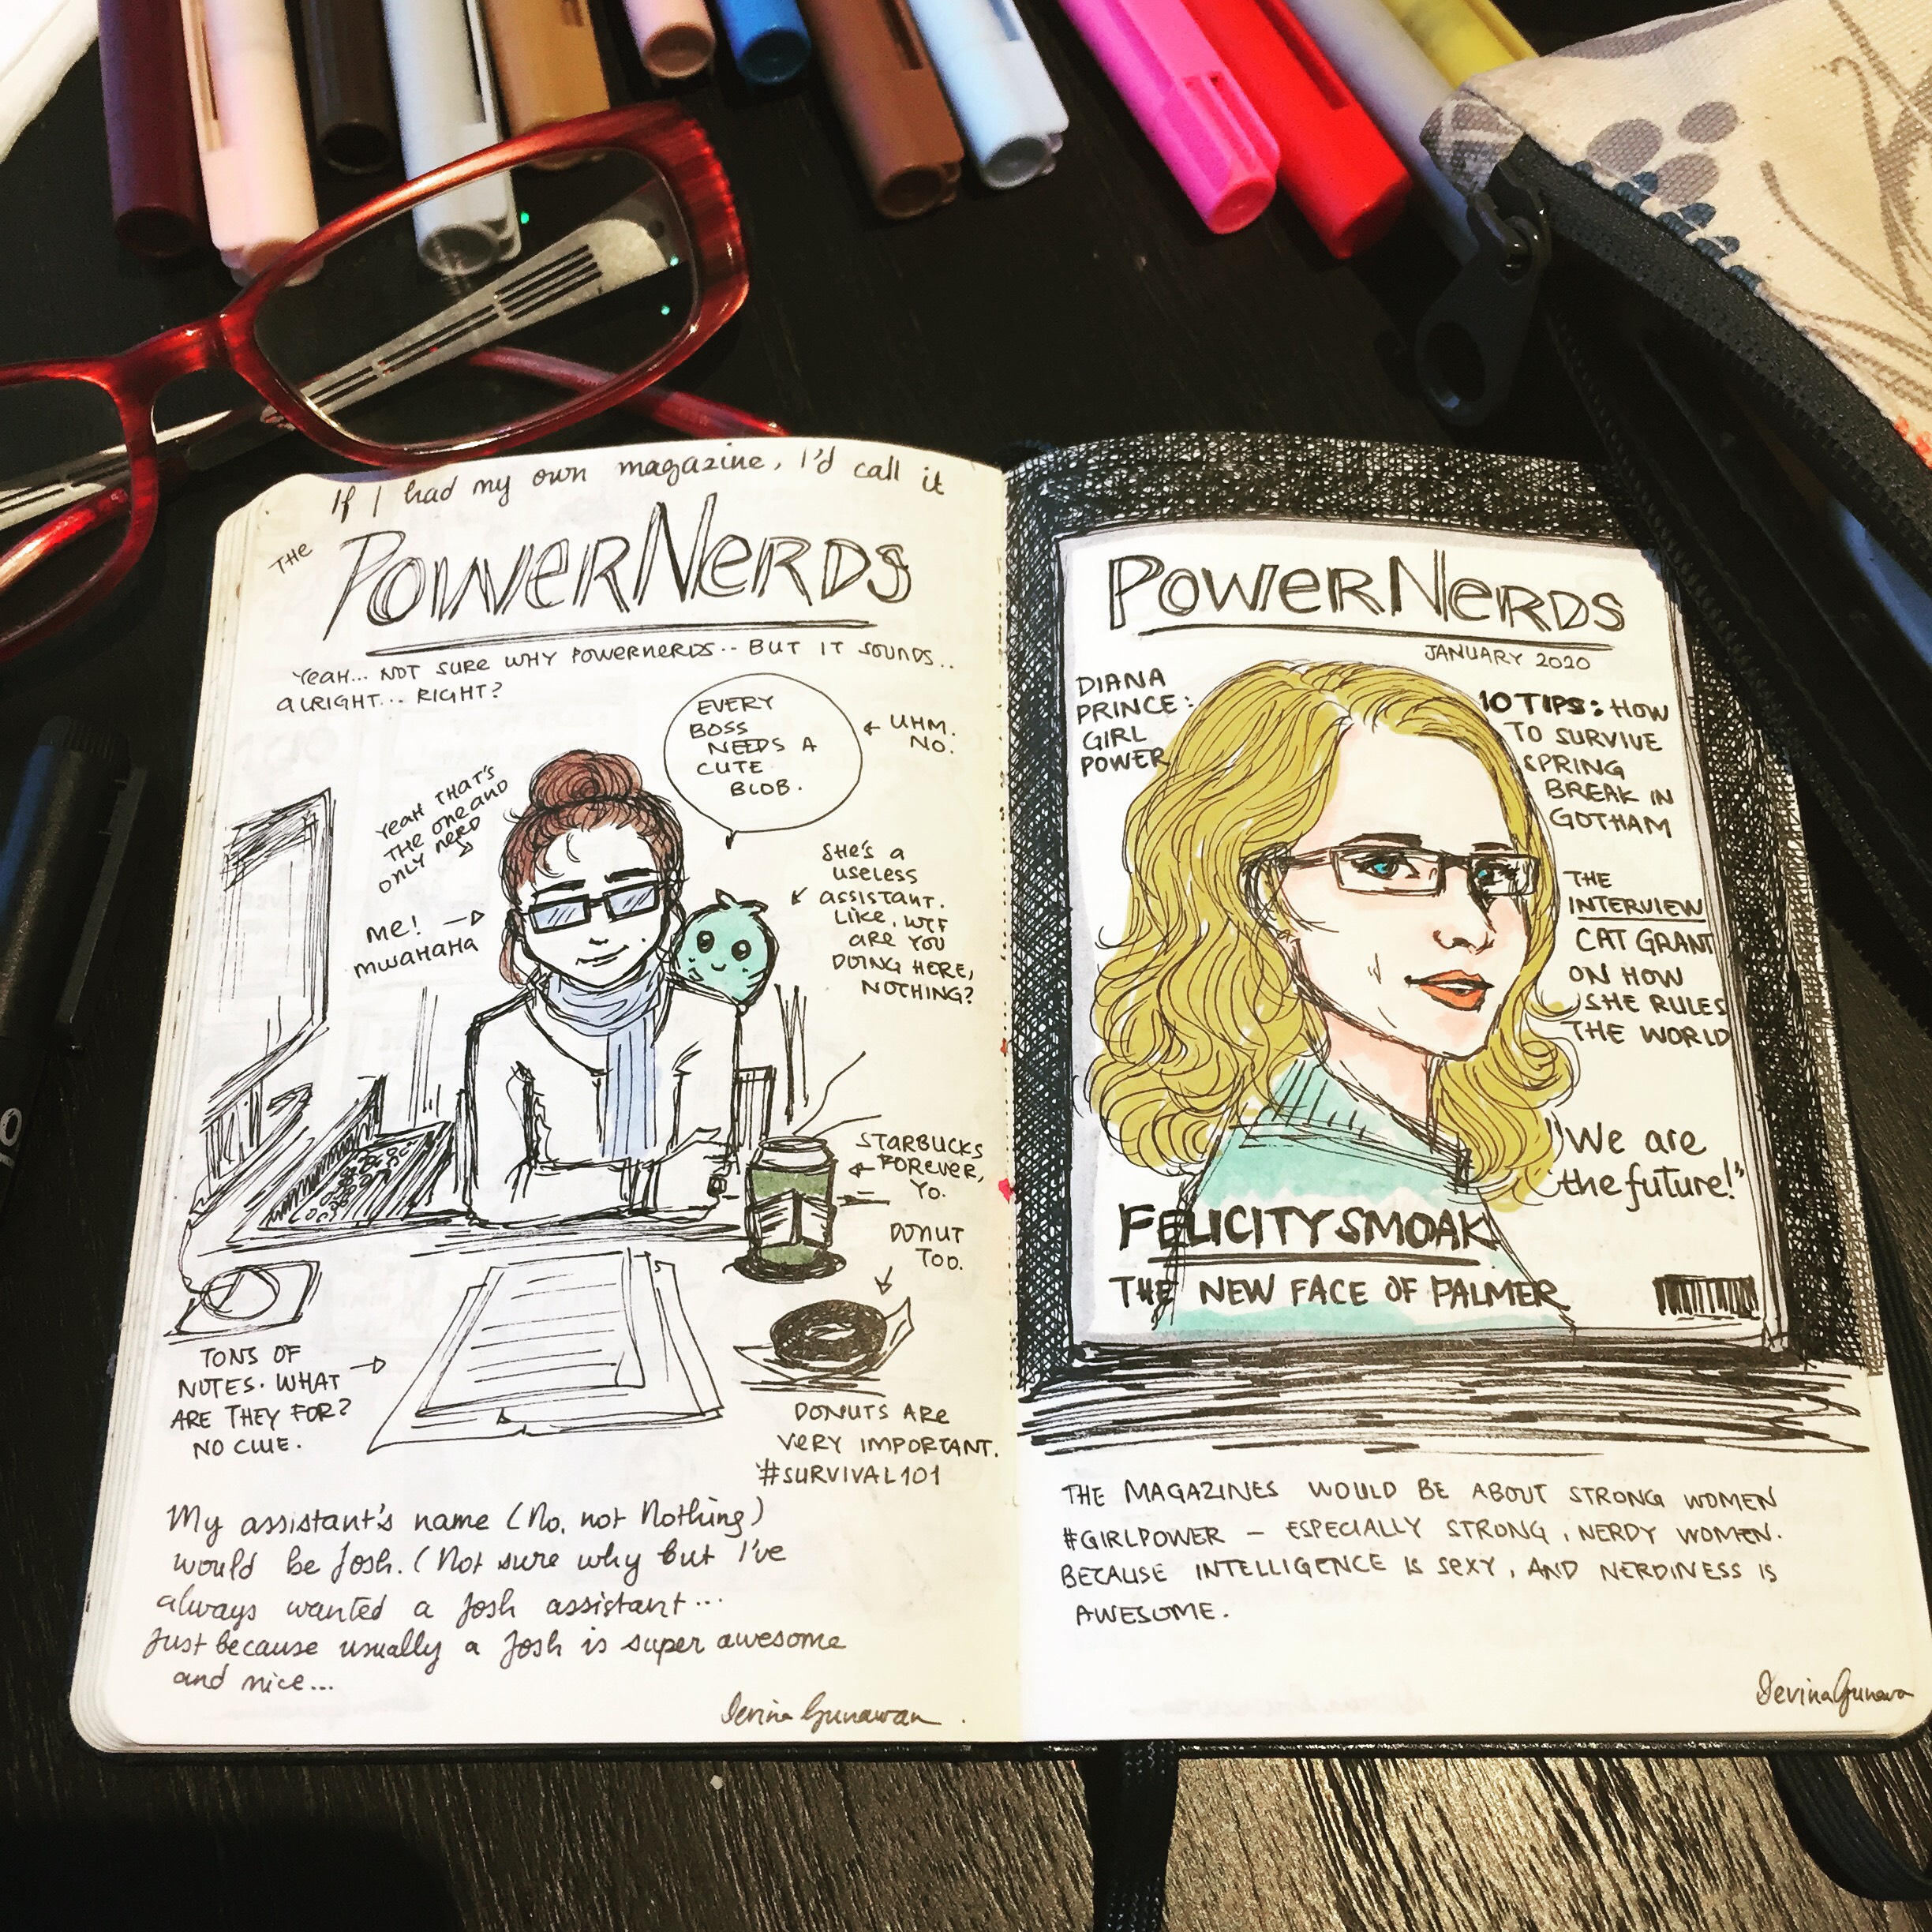 If I had my own magazine, I'd call it
THE
POWERNERDS
YEAH... NOT SURE WHY POWERNERDS.. BUT IT SOUNDS..
ALRIGHT... RIGHT?
EVERY
BOSS
NEEDS A
CUTE
BLOB.
← UHM.
NO.
YEAH THAT'S
THE ONE AND
ONLY NERD
ME! →
MWAHAHA
SHE'S A
USELESS
ASSISTANT.
LIKE, WTF
ARE YOU
DOING HERE,
NOTHING?
STARBUCKS
FOREVER,
YO.
DONUT
TOO.
TONS OF
NOTES. WHAT
ARE THEY FOR?
NO CLUE.
DONUTS ARE
VERY IMPORTANT.
#SURVIVAL101
My assistant's name (No, not Nothing)
would be Josh. (Not sure why but I've
always wanted a Josh assistant...
Just because usually a Josh is super awesome
and nice...
Devina Gunawan
POWERNERDS
JANUARY 2020
DIANA
PRINCE:
GIRL
POWER
10 TIPS: HOW
TO SURVIVE
SPRING
BREAK IN
GOTHAM
THE
INTERVIEW
CAT GRANT
ON HOW
SHE RULES
THE WORLD
"We are
the future!"
FELICITY SMOAK
THE NEW FACE OF PALMER
THE MAGAZINES WOULD BE ABOUT STRONG WOMEN
#GIRLPOWER – ESPECIALLY STRONG, NERDY WOMEN.
BECAUSE INTELLIGENCE IS SEXY, AND NERDINESS IS
AWESOME.
Devina Gunawan